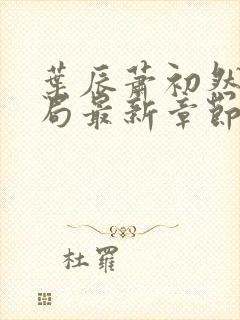 葉辰蕭初然
局最新章節
杜羅